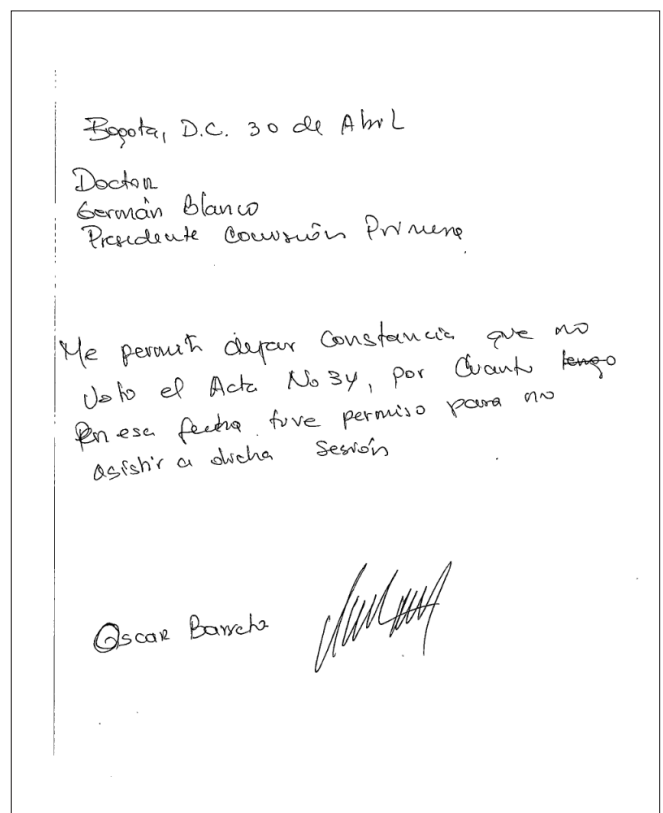 Bogota, D.C. 30 de Abril
Doctor
Germán Blanco
Presidente Comisión Primera
Me permito dejar constancia que no
voto el Acta No 34, por cuanto tengo
en esa fecha tuve permiso para no
asistir a dicha Sesión
Oscar Barreto